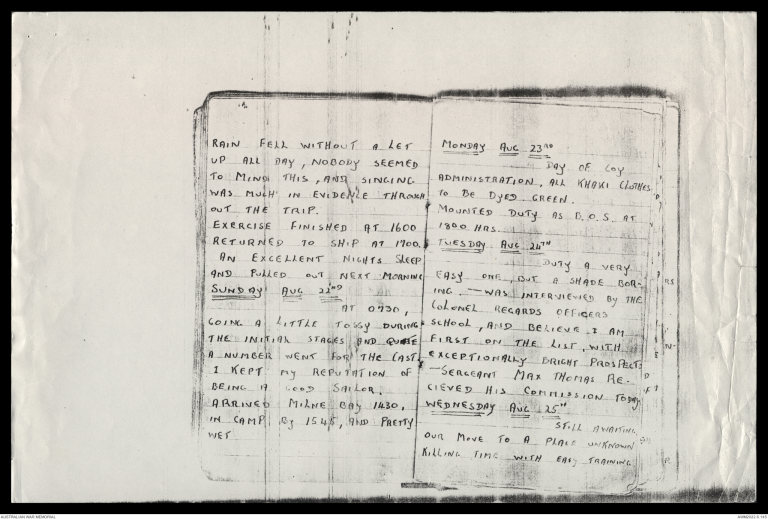 RAIN FELL WITHOUT A LET
UP ALL DAY, NOBODY SEEMED
TO MIND THIS, AND SINGING
WAS MUCH IN EVIDENCE THROUGH
OUT THE TRIP.
EXERCISE FINISHED AT 1600
RETURNED TO SHIP AT 1700.
AN EXCELLENT NIGHTS SLEEP
AND PULLED OUT NEXT MORNING
SUNDAY AUG 22ND
AT 0730,
GOING A LITTLE TOSSY DURING
THE INITIAL STAGES AND QUITE
A NUMBER WENT FOR THE CAST
I KEPT MY REPUTATION OF
BEING A GOOD SAILOR.
ARRIVED MILNE BAY 1430,
IN CAMP BY 1545, AND PRETTY
WET
MONDAY AUG 23RD
DAY OF COY
ADMINISTRATION, ALL KHAKI CLOTHES
TO BE DYED GREEN.
MOUNTED DUTY AS B.O.S. AT
1800 HRS.
TUESDAY AUG 24TH
DUTY A VERY
EASY ONE, BUT A SHADE BOR-
ING. — WAS INTERVIEWED BY THE
COLONEL REGARDS OFFICERS
SCHOOL, AND BELIEVE I AM
FIRST ON THE LIST, WITH
EXCEPTIONALLY BRIGHT PROSPECTS
— SERGEANT MAX THOMAS RE-
CIEVED HIS COMMISSION TODAY
WEDNESDAY AUG 25TH
STILL AWAITING
OUR MOVE TO A PLACE UNKNOWN
KILLING TIME WITH EASY TRAINING
AUSTRALIAN WAR MEMORIAL